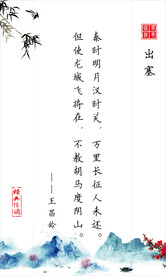 出塞
秦时明月汉时关，万里长征人未还。
但使龙城飞将在，不教胡马度阴山。
——王昌龄
经典诵读